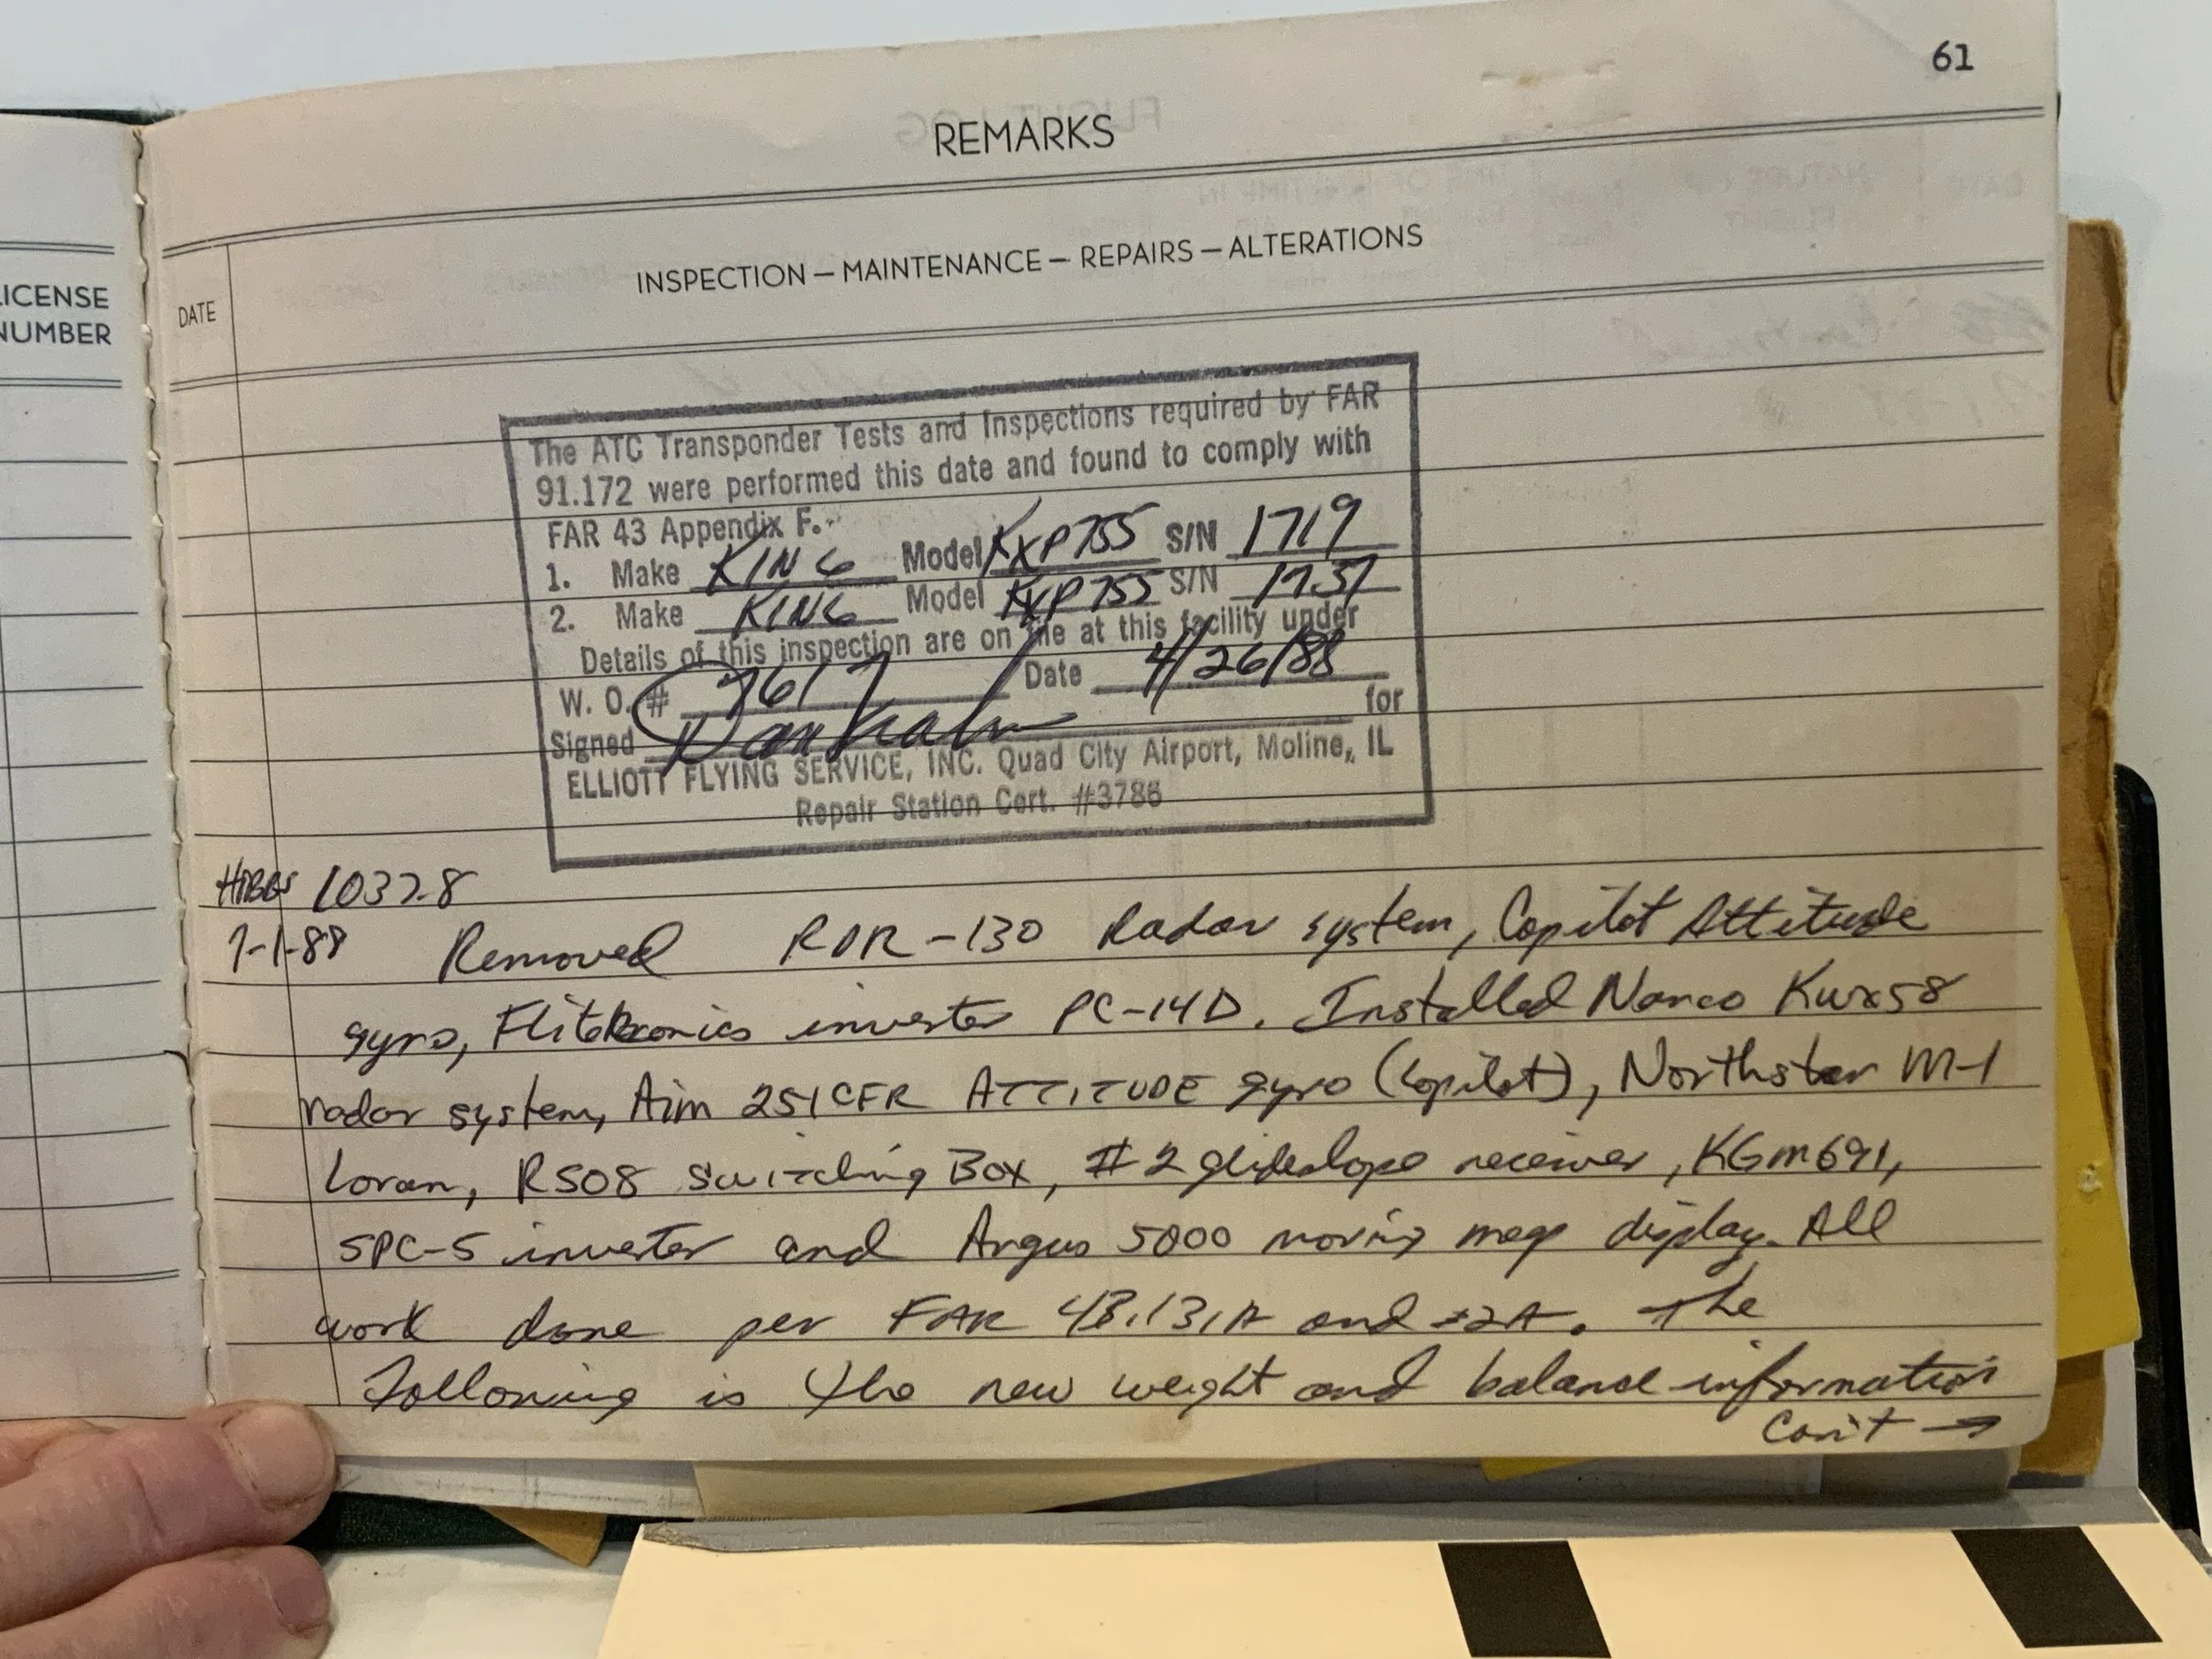 61
REMARKS
LICENSE
NUMBER
DATE
INSPECTION — MAINTENANCE — REPAIRS — ALTERATIONS
The ATC Transponder Tests and Inspections required by FAR
91.172 were performed this date and found to comply with
FAR 43 Appendix F.
1. Make KING Model KXP755 S/N 1719
2. Make KING Model KXP755 S/N 1737
Details of this inspection are on file at this facility under
W. O. # 7617 Date 4/26/88
Signed for
ELLIOTT FLYING SERVICE, INC. Quad City Airport, Moline, IL
Repair Station Cert. #3786
HOBBS 1037.8
7-1-88 Removed RDR-130 Radar system, Copilot Attitude
gyro, Flitetronics inverter PC-14D. Installed Narco KWX58
radar system, Aim 251CFR ATTITUDE gyro (Copilot), Northstar M-1
Loran, RS08 switching Box, #2 glideslope receiver, KGM691,
SPC-5 inverter and Argus 5000 moving map display. All
work done per FAR 43.13,1A and 2A. The
following is the new weight and balance information
Con't →